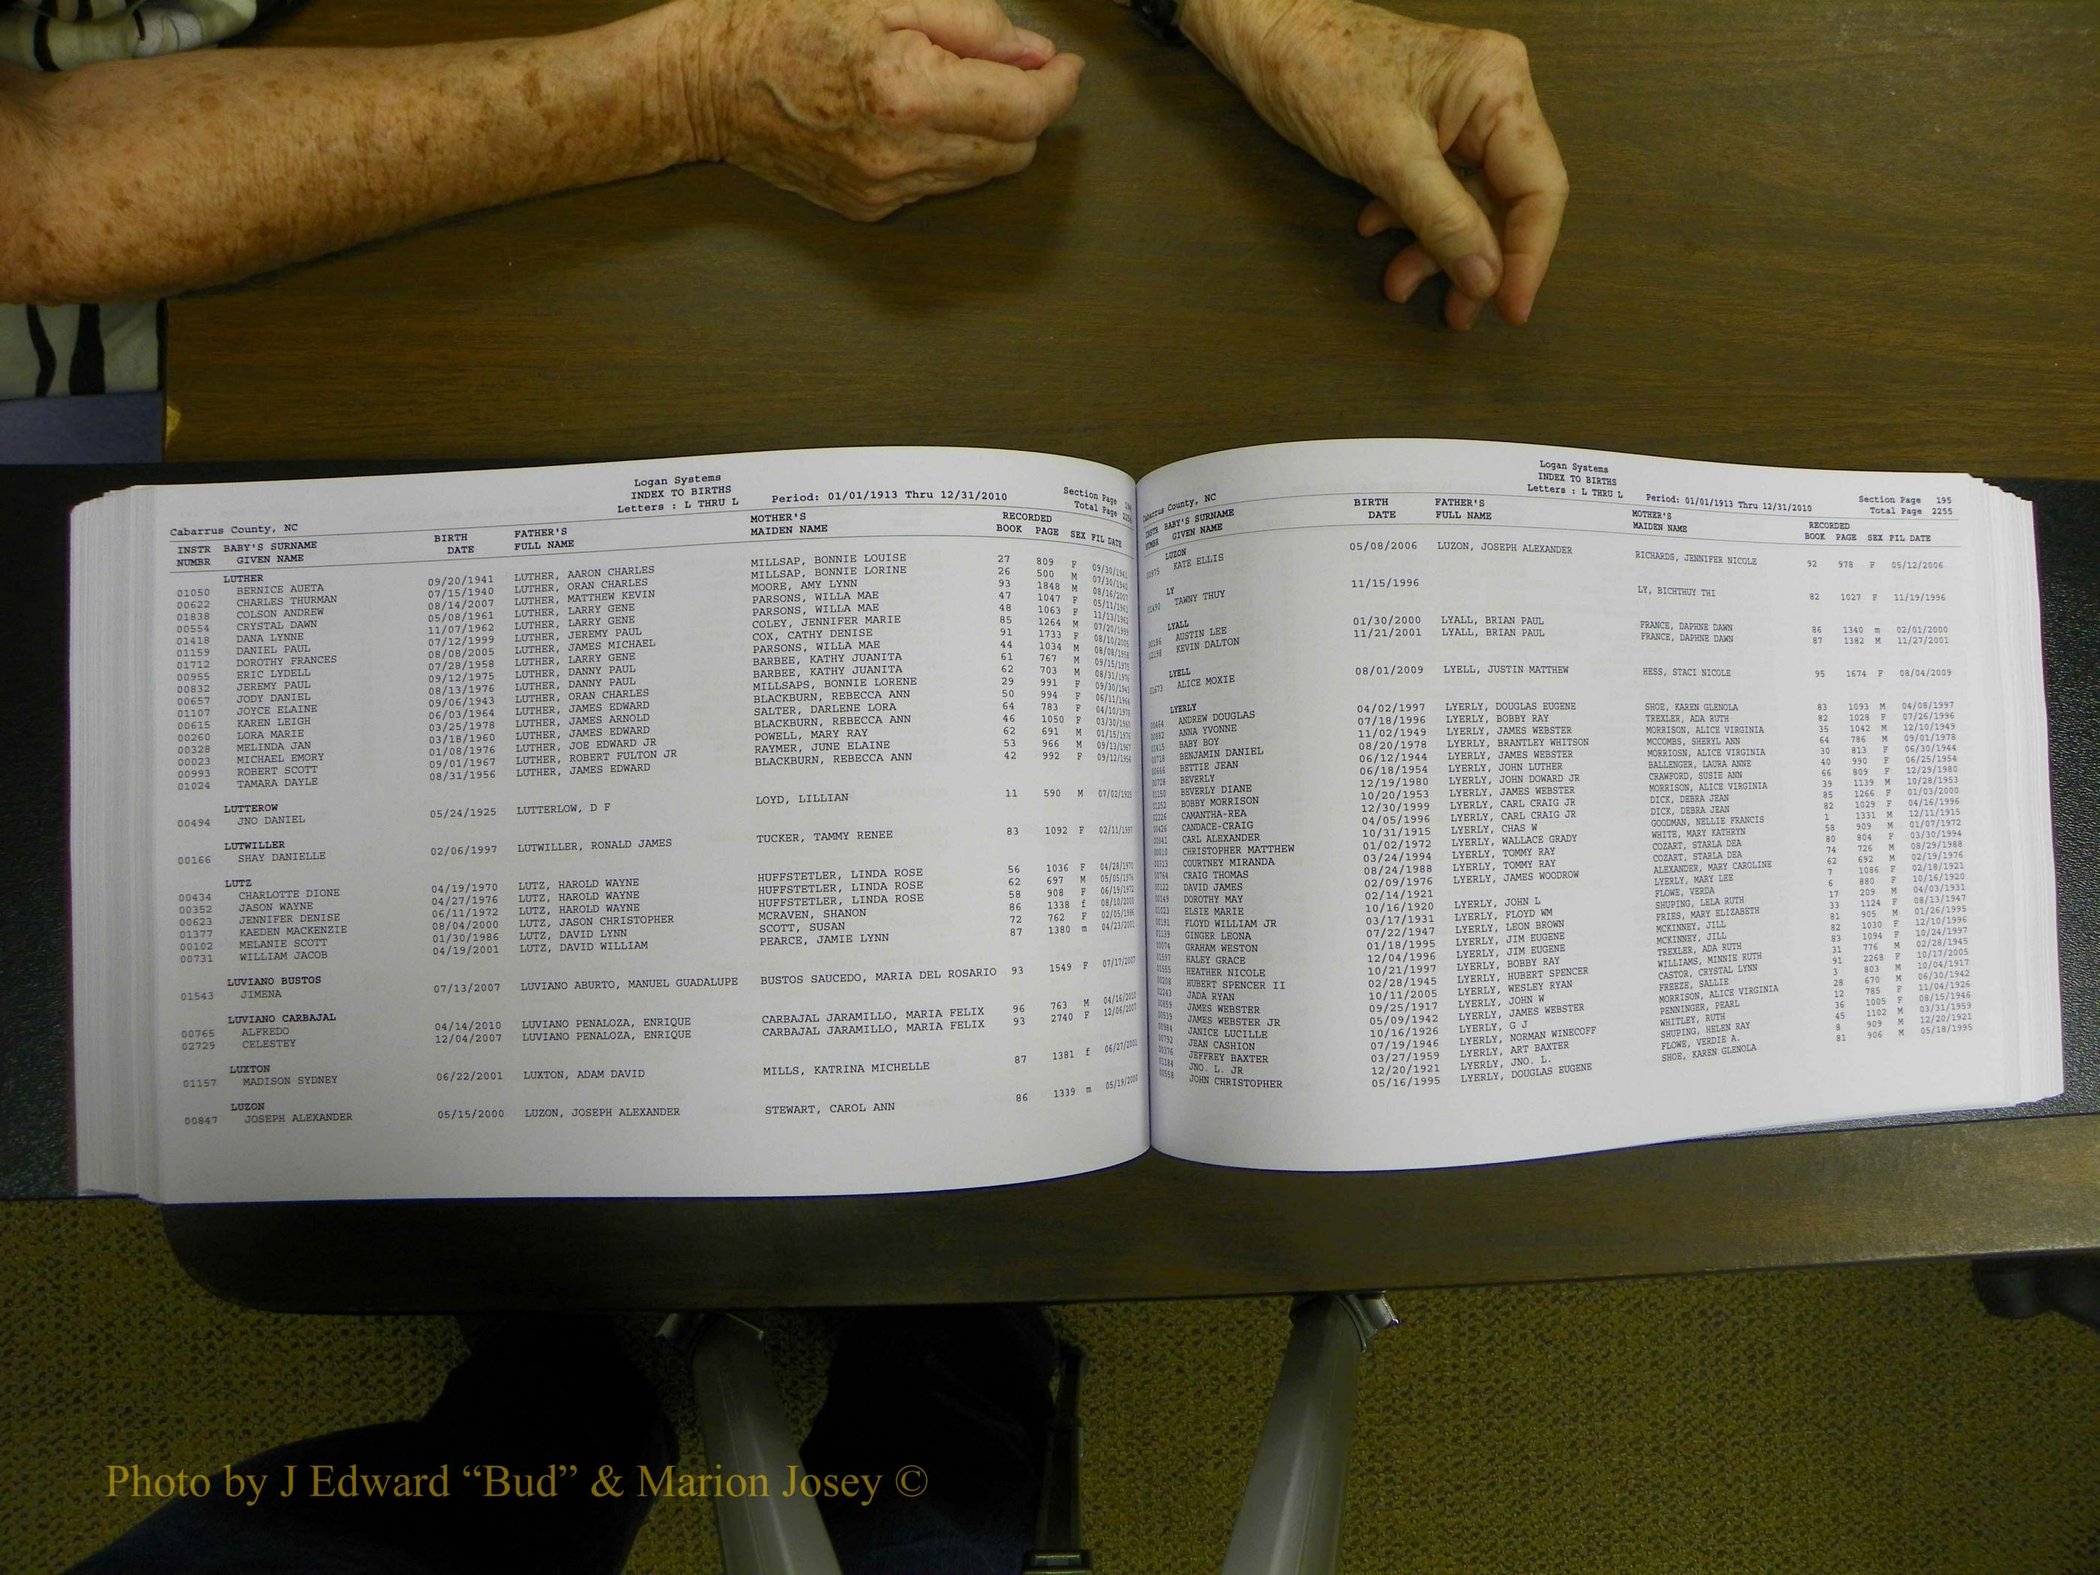 Logan Systems
INDEX TO BIRTHS
Letters : L THRU L
Period: 01/01/1913 Thru 12/31/2010
Section Page
Total Page
Cabarrus County, NC
INSTR BABY'S SURNAME BIRTH FATHER'S MOTHER'S RECORDED
NUMBR GIVEN NAME DATE FULL NAME MAIDEN NAME BOOK PAGE SEX FIL DATE
LUTHER
01050 BERNICE AUETA 09/20/1941 LUTHER, AARON CHARLES MILLSAP, BONNIE LOUISE 27 809 F 09/30/1941
00622 CHARLES THURMAN 07/15/1940 LUTHER, ORAN CHARLES MILLSAP, BONNIE LORINE 26 500 M 07/30/1940
01838 COLSON ANDREW 08/14/2007 LUTHER, MATTHEW KEVIN MOORE, AMY LYNN 93 1848 M 08/16/2007
00554 CRYSTAL DAWN 05/08/1961 LUTHER, LARRY GENE PARSONS, WILLA MAE 47 1047 F 05/11/1961
01418 DANA LYNNE 11/07/1962 LUTHER, LARRY GENE PARSONS, WILLA MAE 48 1063 F 11/13/1962
01159 DANIEL PAUL 07/12/1999 LUTHER, JEREMY PAUL COLEY, JENNIFER MARIE 85 1264 M 07/20/1999
01712 DOROTHY FRANCES 08/08/2005 LUTHER, JAMES MICHAEL COX, CATHY DENISE 91 1733 F 08/10/2005
00955 ERIC LYDELL 07/28/1958 LUTHER, LARRY GENE PARSONS, WILLA MAE 44 1034 M 08/08/1958
00832 JEREMY PAUL 09/12/1975 LUTHER, DANNY PAUL BARBEE, KATHY JUANITA 61 767 M 09/15/1975
00657 JODY DANIEL 08/13/1976 LUTHER, DANNY PAUL BARBEE, KATHY JUANITA 62 703 M 08/31/1976
01107 JOYCE ELAINE 09/06/1943 LUTHER, ORAN CHARLES MILLSAPS, BONNIE LORENE 29 991 F 09/30/1943
00615 KAREN LEIGH 06/03/1964 LUTHER, JAMES EDWARD BLACKBURN, REBECCA ANN 50 994 F 06/11/1964
00260 LORA MARIE 03/25/1978 LUTHER, JAMES ARNOLD SALTER, DARLENE LORA 64 783 F 04/10/1978
00328 MELINDA JAN 03/18/1960 LUTHER, JAMES EDWARD BLACKBURN, REBECCA ANN 46 1050 F
00023 MICHAEL EMORY 01/08/1976 LUTHER, JOE EDWARD JR POWELL, MARY RAY 62 691 M 01/15/1976
00993 ROBERT SCOTT 09/01/1967 LUTHER, ROBERT FULTON JR RAYMER, JUNE ELAINE 53 966 M 09/13/1967
01024 TAMARA DAYLE 08/31/1956 LUTHER, JAMES EDWARD BLACKBURN, REBECCA ANN 42 992 F 09/12/1956
LUTTEROW
00494 JNO DANIEL 05/24/1925 LUTTERLOW, D F LOYD, LILLIAN 11 590 M 07/02/1925
LUTWILLER
00166 SHAY DANIELLE 02/06/1997 LUTWILLER, RONALD JAMES TUCKER, TAMMY RENEE 83 1092 F 02/11/1997
LUTZ
00434 CHARLOTTE DIONE 04/19/1970 LUTZ, HAROLD WAYNE HUFFSTETLER, LINDA ROSE 56 1036 F 04/28/1970
00352 JASON WAYNE 04/27/1976 LUTZ, HAROLD WAYNE HUFFSTETLER, LINDA ROSE 62 697 M 05/05/1976
00623 JENNIFER DENISE 06/11/1972 LUTZ, HAROLD WAYNE HUFFSTETLER, LINDA ROSE 58 908 F 06/19/1972
01377 KAEDEN MACKENZIE 08/04/2000 LUTZ, JASON CHRISTOPHER MCRAVEN, SHANON 86 1338 f 08/10/2000
00102 MELANIE SCOTT 01/30/1986 LUTZ, DAVID LYNN SCOTT, SUSAN 72 762 F 02/05/1986
00731 WILLIAM JACOB 04/19/2001 LUTZ, DAVID WILLIAM PEARCE, JAMIE LYNN 87 1380 m 04/23/2001
LUVIANO BUSTOS
01543 JIMENA 07/13/2007 LUVIANO ABURTO, MANUEL GUADALUPE BUSTOS SAUCEDO, MARIA DEL ROSARIO 93 1549 F 07/17/2007
LUVIANO CARBAJAL
00765 ALFREDO 04/14/2010 LUVIANO PENALOZA, ENRIQUE CARBAJAL JARAMILLO, MARIA FELIX 96 763 M 04/16/2010
02729 CELESTEY 12/04/2007 LUVIANO PENALOZA, ENRIQUE CARBAJAL JARAMILLO, MARIA FELIX 93 2740 F 12/06/2007
LUXTON
01157 MADISON SYDNEY 06/22/2001 LUXTON, ADAM DAVID MILLS, KATRINA MICHELLE 87 1381 f 06/27/2001
LUZON
00847 JOSEPH ALEXANDER 05/15/2000 LUZON, JOSEPH ALEXANDER STEWART, CAROL ANN 86 1339 m 05/19/2000
Logan Systems
INDEX TO BIRTHS
Letters : L THRU L
Period: 01/01/1913 Thru 12/31/2010
Section Page 195
Total Page 2255
Cabarrus County, NC
INSTR BABY'S SURNAME BIRTH FATHER'S MOTHER'S RECORDED
NUMBR GIVEN NAME DATE FULL NAME MAIDEN NAME BOOK PAGE SEX FIL DATE
LUZON
00975 KATE ELLIS 05/08/2006 LUZON, JOSEPH ALEXANDER RICHARDS, JENNIFER NICOLE 92 978 F 05/12/2006
LY
01490 TAWNY THUY 11/15/1996 LY, BICHTHUY THI 82 1027 F 11/19/1996
LYALL
00186 AUSTIN LEE 01/30/2000 LYALL, BRIAN PAUL FRANCE, DAPHNE DAWN 86 1340 m 02/01/2000
KEVIN DALTON 11/21/2001 LYALL, BRIAN PAUL FRANCE, DAPHNE DAWN 87 1382 M 11/27/2001
LYELL
01673 ALICE MOXIE 08/01/2009 LYELL, JUSTIN MATTHEW HESS, STACI NICOLE 95 1674 F 08/04/2009
LYERLY
00464 ANDREW DOUGLAS 04/02/1997 LYERLY, DOUGLAS EUGENE SHOE, KAREN GLENOLA 83 1093 M 04/08/1997
00892 ANNA YVONNE 07/18/1996 LYERLY, BOBBY RAY TREXLER, ADA RUTH 82 1028 F 07/26/1996
01415 BABY BOY 11/02/1949 LYERLY, JAMES WEBSTER MORRISON, ALICE VIRGINIA 35 1042 M 12/10/1949
00718 BENJAMIN DANIEL 08/20/1978 LYERLY, BRANTLEY WHITSON MCCOMBS, SHERYL ANN 64 786 M 09/01/1978
00666 BETTIE JEAN 06/12/1944 LYERLY, JAMES WEBSTER MORRIOSN, ALICE VIRGINIA 30 813 F 06/30/1944
00728 BEVERLY 06/18/1954 LYERLY, JOHN LUTHER BALLENGER, LAURA ANNE 40 990 F 06/25/1954
01150 BEVERLY DIANE 12/19/1980 LYERLY, JOHN DOWARD JR CRAWFORD, SUSIE ANN 66 809 F 12/29/1980
01252 BOBBY MORRISON 10/20/1953 LYERLY, JAMES WEBSTER MORRISON, ALICE VIRGINIA 39 1139 M 10/28/1953
02226 CAMANTHA-REA 12/30/1999 LYERLY, CARL CRAIG JR DICK, DEBRA JEAN 85 1266 F 01/03/2000
00426 CANDACE-CRAIG 04/05/1996 LYERLY, CARL CRAIG JR DICK, DEBRA JEAN 82 1029 F 04/16/1996
00841 CARL ALEXANDER 10/31/1915 LYERLY, CHAS W GOODMAN, NELLIE FRANCIS 1 1331 M 12/11/1915
00010 CHRISTOPHER MATTHEW 01/02/1972 LYERLY, WALLACE GRADY WHITE, MARY KATHRYN 58 909 M 01/07/1972
00313 COURTNEY MIRANDA 03/24/1994 LYERLY, TOMMY RAY COZART, STARLA DEA 80 804 F 03/30/1994
00764 CRAIG THOMAS 08/24/1988 LYERLY, TOMMY RAY COZART, STARLA DEA 74 726 M 08/29/1988
00122 DAVID JAMES 02/09/1976 LYERLY, JAMES WOODROW ALEXANDER, MARY CAROLINE 62 692 M 02/19/1976
00149 DOROTHY MAY 02/14/1921 LYERLY, MARY LEE 7 1086 F 02/18/1921
01023 ELSIE MARIE 10/16/1920 LYERLY, JOHN L FLOWE, VERDA 6 880 F 10/16/1920
00191 FLOYD WILLIAM JR 03/17/1931 LYERLY, FLOYD WM SHUPING, LELA RUTH 17 209 M 04/03/1931
01139 GINGER LEONA 07/22/1947 LYERLY, LEON BROWN FRIES, MARY ELIZABETH 33 1124 F 08/13/1947
00074 GRAHAM WESTON 01/18/1995 LYERLY, JIM EUGENE MCKINNEY, JILL 81 905 M 01/26/1995
01597 HALEY GRACE 12/04/1996 LYERLY, JIM EUGENE MCKINNEY, JILL 82 1030 F 12/10/1996
01555 HEATHER NICOLE 10/21/1997 LYERLY, BOBBY RAY TREXLER, ADA RUTH 83 1094 F 10/24/1997
00208 HUBERT SPENCER II 02/28/1945 LYERLY, HUBERT SPENCER WILLIAMS, MINNIE RUTH 31 776 M 02/28/1945
02243 JADA RYAN 10/11/2005 LYERLY, WESLEY RYAN CASTOR, CRYSTAL LYNN 91 2268 F 10/17/2005
00859 JAMES WEBSTER 09/25/1917 LYERLY, JOHN W FREEZE, SALLIE 3 803 M 10/04/1917
00539 JAMES WEBSTER JR 05/09/1942 LYERLY, JAMES WEBSTER MORRISON, ALICE VIRGINIA 28 670 M 06/30/1942
00984 JANICE LUCILLE 10/16/1926 LYERLY, G J PENNINGER, PEARL 12 785 F 11/04/1926
00792 JEAN CASHION 07/19/1946 LYERLY, NORMAN WINECOFF WHITLEY, RUTH 36 1005 F 08/15/1946
00376 JEFFREY BAXTER 03/27/1959 LYERLY, ART BAXTER SHUPING, HELEN RAY 45 1102 M 03/31/1959
01184 JNO. L. JR 12/20/1921 LYERLY, JNO. L. FLOWE, VERDIE A. 8 909 M 12/20/1921
00558 JOHN CHRISTOPHER 05/16/1995 LYERLY, DOUGLAS EUGENE SHOE, KAREN GLENOLA 81 906 M 05/18/1995
Photo by J Edward “Bud” & Marion Josey ©